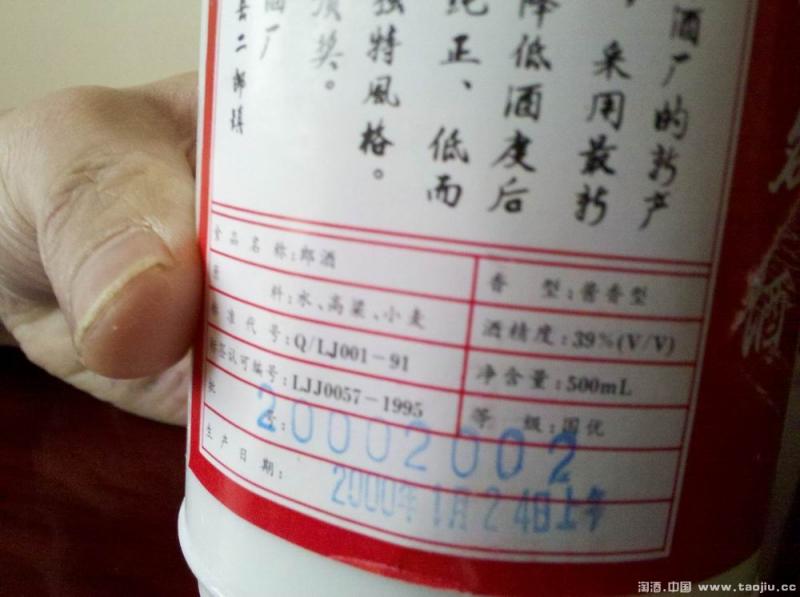 酒厂的新产
，采用最新
降低酒度后
纯正、低而
独特風格。
奖。
酒厂
县二郎镇
食品名称:郎酒
香型:酱香型
原料:水、高粱、小麦
酒精度:39%(V/V)
标准代号:Q/LJ001-91
净含量:500mL
标签认可编号:LJJ0057-1995
等级:国优
批号:20002002
生产日期:2000年1月24日上午
酒
淘酒.中国 www.taojiu.cc